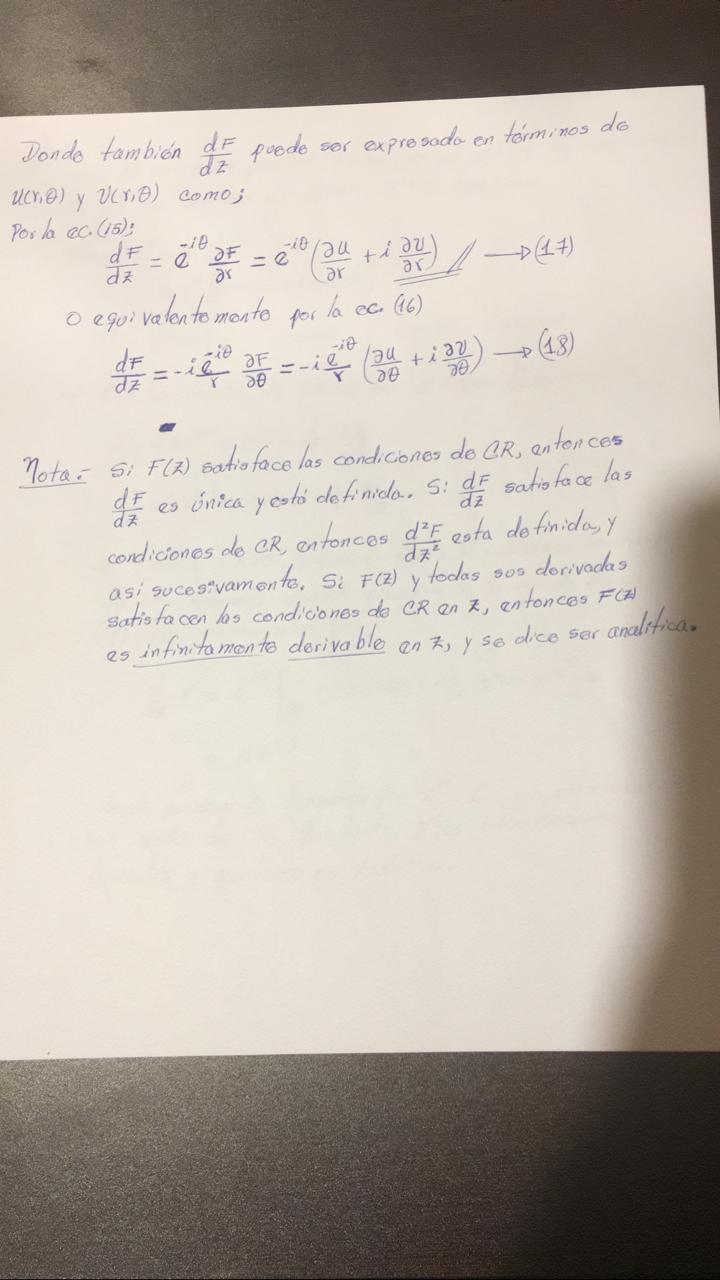 Donde también dF/dz puede ser expresada en términos de
U(r,θ) y V(r,θ) como;
Por la ec.(15);
dF/dz = e^{-iθ} ∂F/∂r = e^{-iθ} (∂U/∂r + i ∂V/∂r) // → (17)
O equivalentemente por la ec. (16)
dF/dz = -i e^{-iθ}/r ∂F/∂θ = -i e^{-iθ}/r (∂U/∂θ + i ∂V/∂θ) → (18)
Nota:- Si F(z) satisface las condiciones de CR, entonces
dF/dz es única y está definida. Si dF/dz satisface las
condiciones de CR, entonces d²F/dz² esta definida, y
así sucesivamente. Si F(z) y todas sus derivadas
satisfacen las condiciones de CR en z, entonces F(z)
es infinitamente derivable en z, y se dice ser analítica.